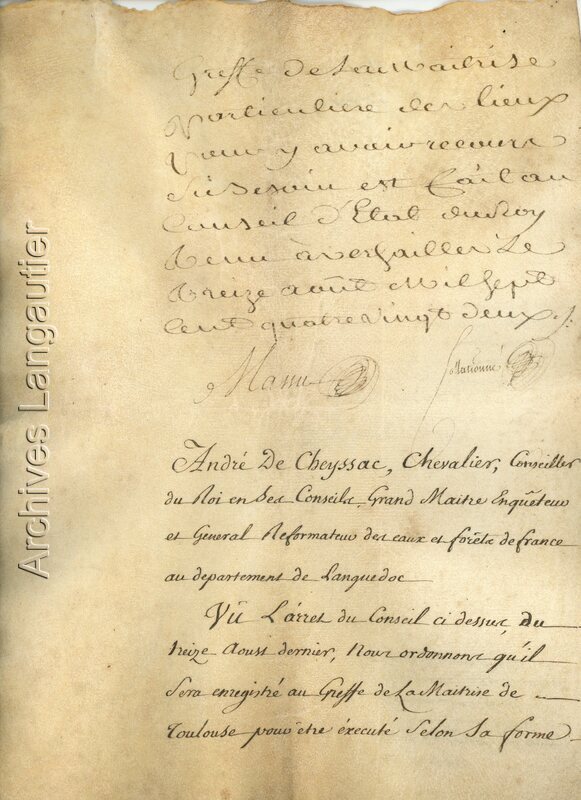 Greffe de La Maitrise
particuliere des lieux
pour y avoir recours
si besoin est fait au
Conseil d'Etat du Roy
tenu à versailles Le
treize août Mil sept
cent quatre vingt deux
Andrê De Cheyssac, Chevalier, Conseiller
du Roi en ses Conseils, Grand Maitre Enquêteur
et General Reformateur des eaux et forêts de france
au departement de Languedoc
Vû L'arret du Conseil ci dessus, du
treize Aoust dernier, Nous ordonnons qu'il
sera enregistré au Greffe de La Maitrise de
Toulouse pour être éxecuté selon sa forme
Archives Langautier